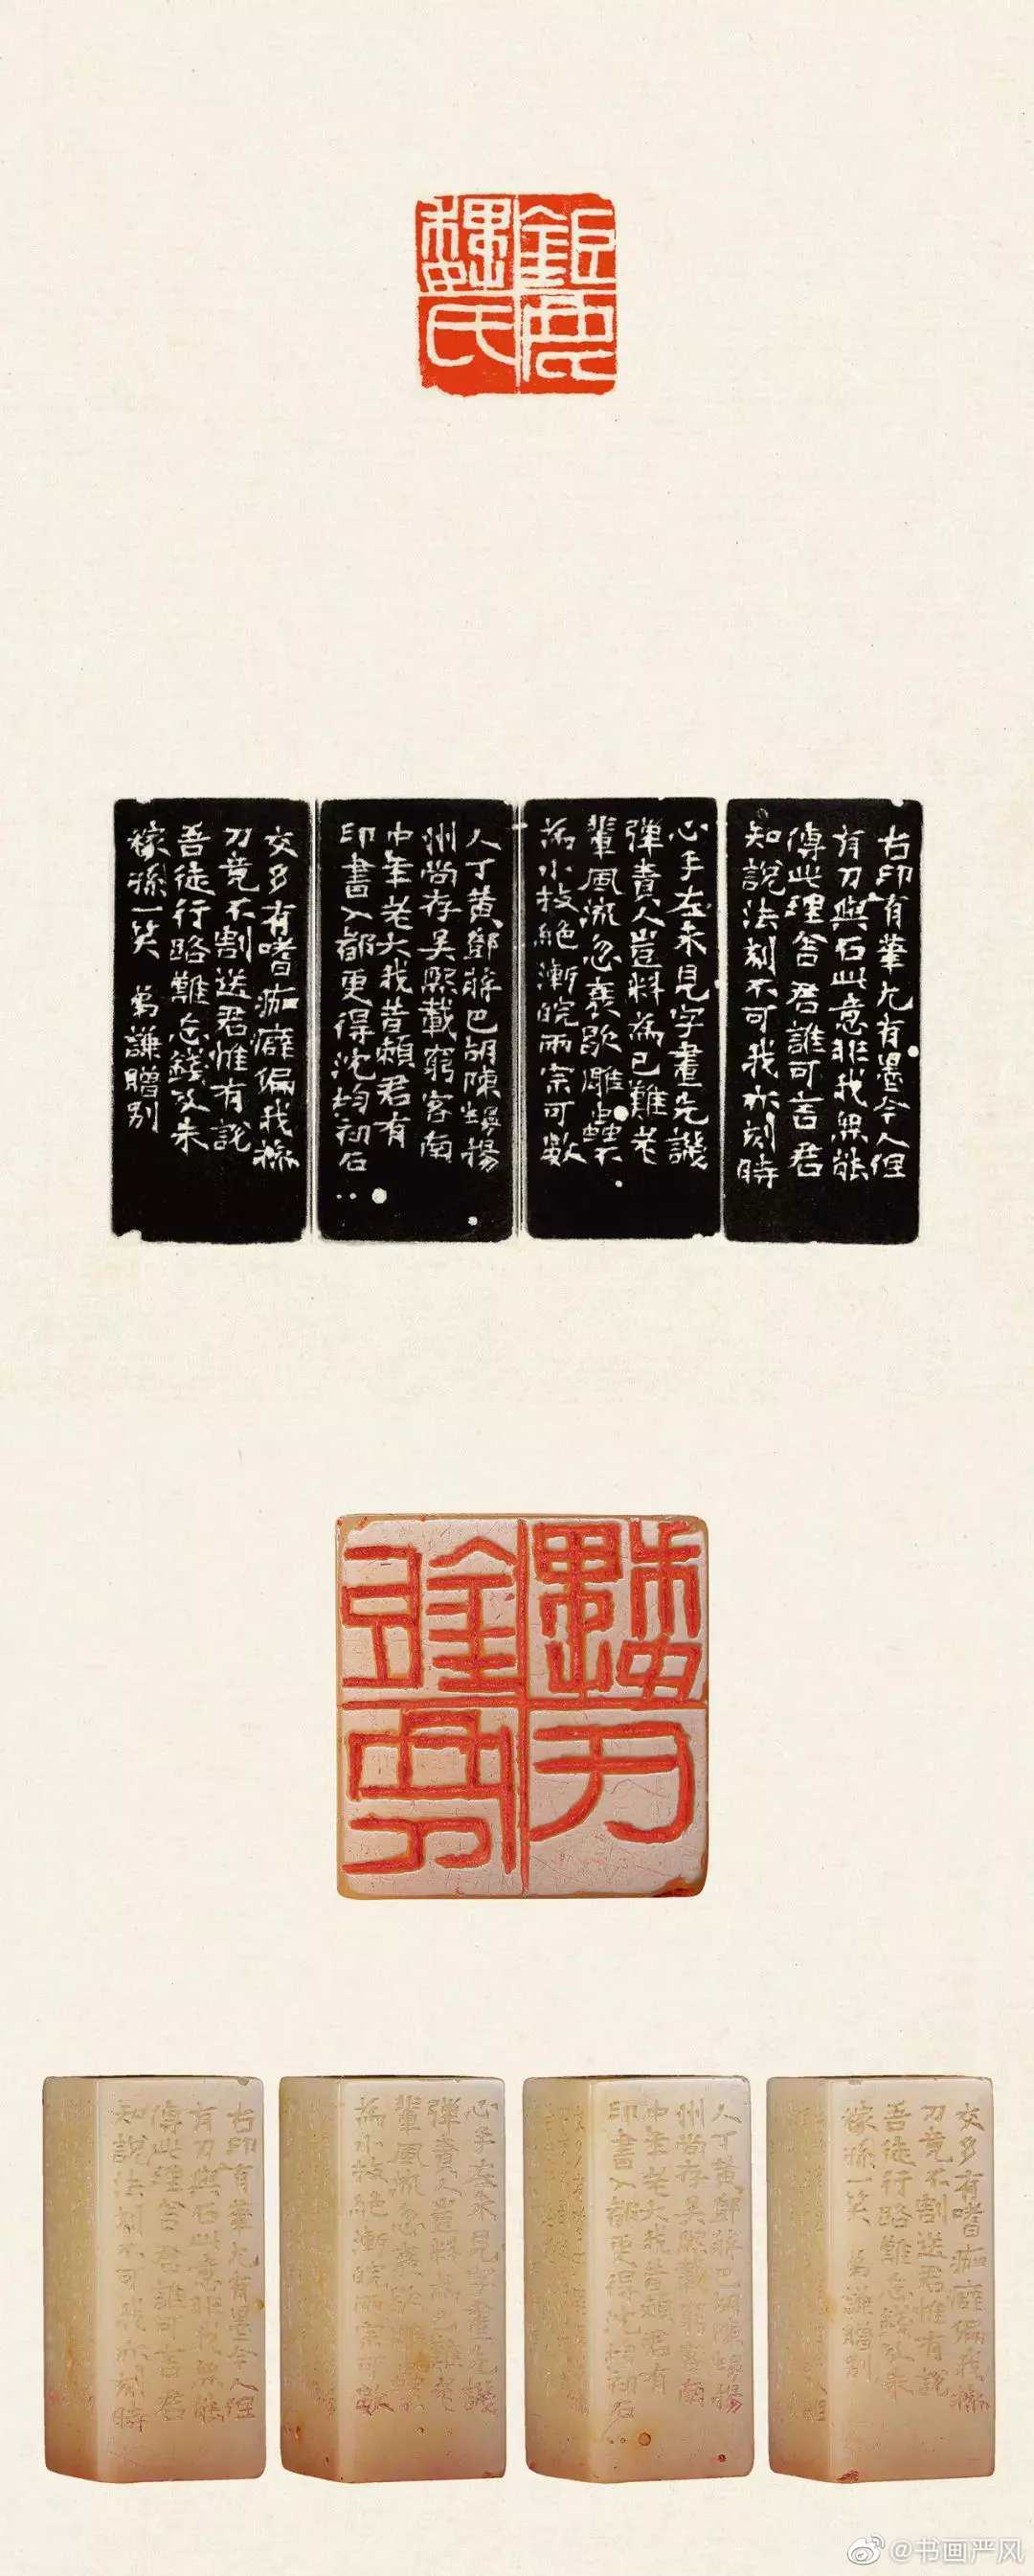 鉅鹿
魏氏
古印有筆尤有墨今人但
有刀與石此意非我無能
傳此理舍君誰可言君
知說法刻不可我亦刻時
心手左未見字畫先譏
彈責人豈料為己難老
輩風流忽衰歇雕蟲不
為小技絕浙皖兩宗可數
人丁黃鄧蔣巴胡陳揚
州尚存吳熙載窮客南
中年老大我昔賴君有
印書入都更得沈均初石
交多有嗜痂癖偏我操
刀竟不割送君惟有說
吾徒行路難忘錢及朱
稼孫一笑 弟謙贈別
鉅鹿
魏氏
古印有筆尤有墨今人但
有刀與石此意非我無能
傳此理舍君誰可言君
知說法刻不可我亦刻時
心手左未見字畫先譏
彈責人豈料為己難老
輩風流忽衰歇雕蟲不
為小技絕浙皖兩宗可數
人丁黃鄧蔣巴胡陳揚
州尚存吳熙載窮客南
中年老大我昔賴君有
印書入都更得沈均初石
交多有嗜痂癖偏我操
刀竟不割送君惟有說
吾徒行路難忘錢及朱
稼孫一笑 弟謙贈別
@书画严风